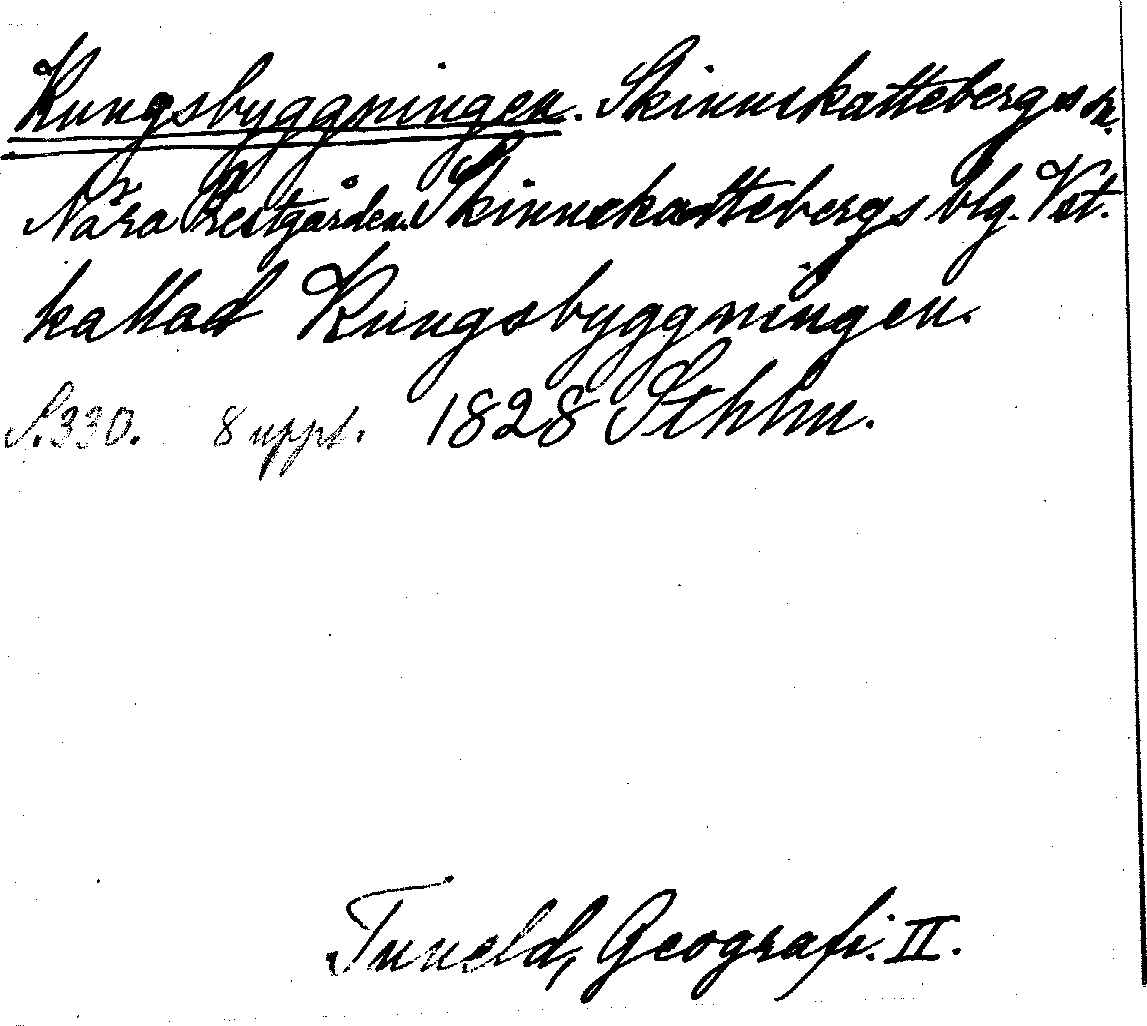 Kungsbyggningen. Skinnskattebergs sn.
Nära Prestgården. Skinnskattebergs blg. Vst.
kallad Kungsbyggningen.
S. 330. 8 uppl. 1828 Sthlm.
Tuneld, Geografi. II.